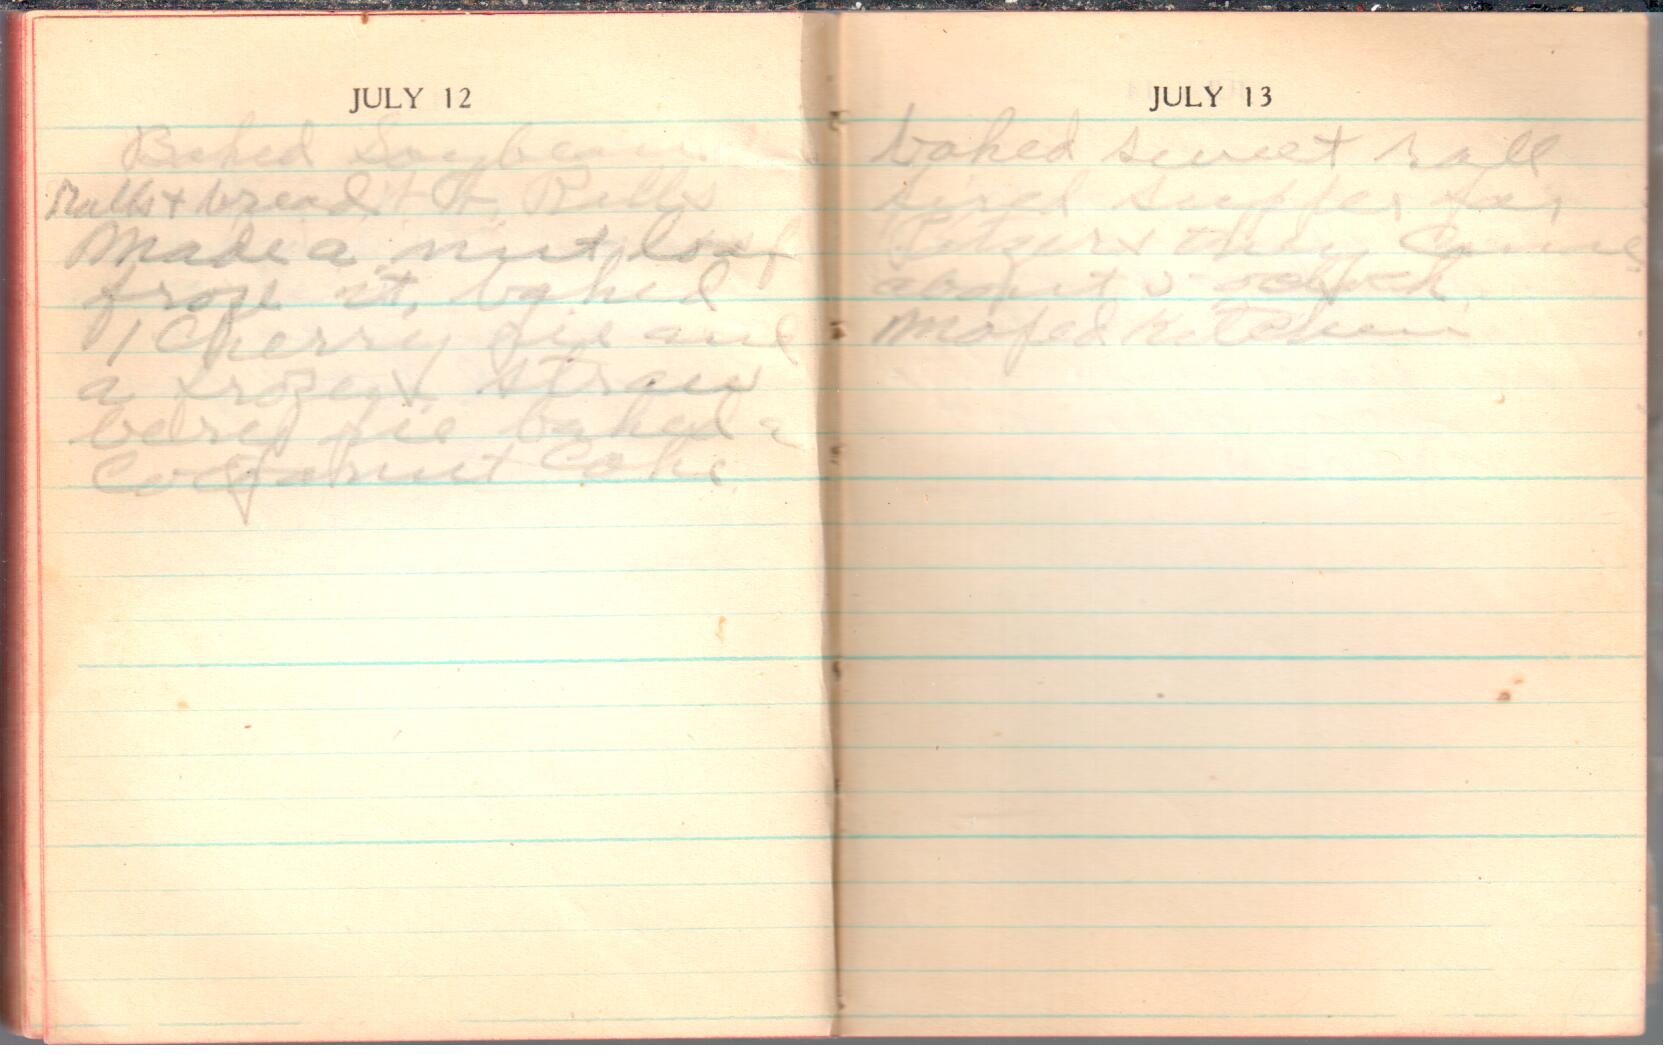 JULY 12
Baked Soybean
Rolls + bread + H. Rolls
Made a nut loaf
froze it, baked
1 Cherry pie and
a frozen straw
berey pie baked a
Cocoanut Cake
JULY 13
baked sweet roll
supper for
they came
about 5 oclock
Moped kitchen